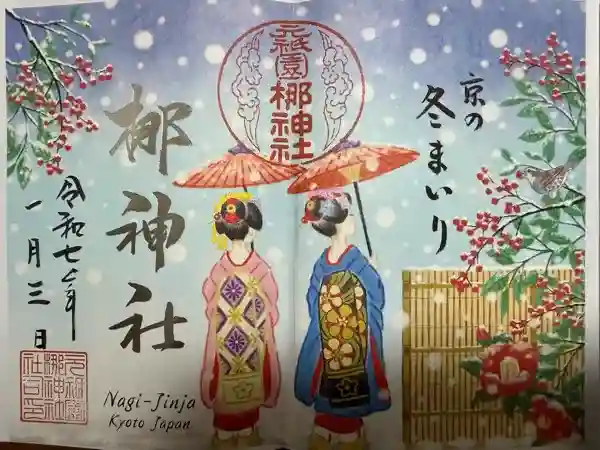 京の
冬まいり
元祇園
梛神社
梛神社
令和七年
一月三日
元祇園
梛神社
社之印
Nagi-Jinja
Kyoto Japan